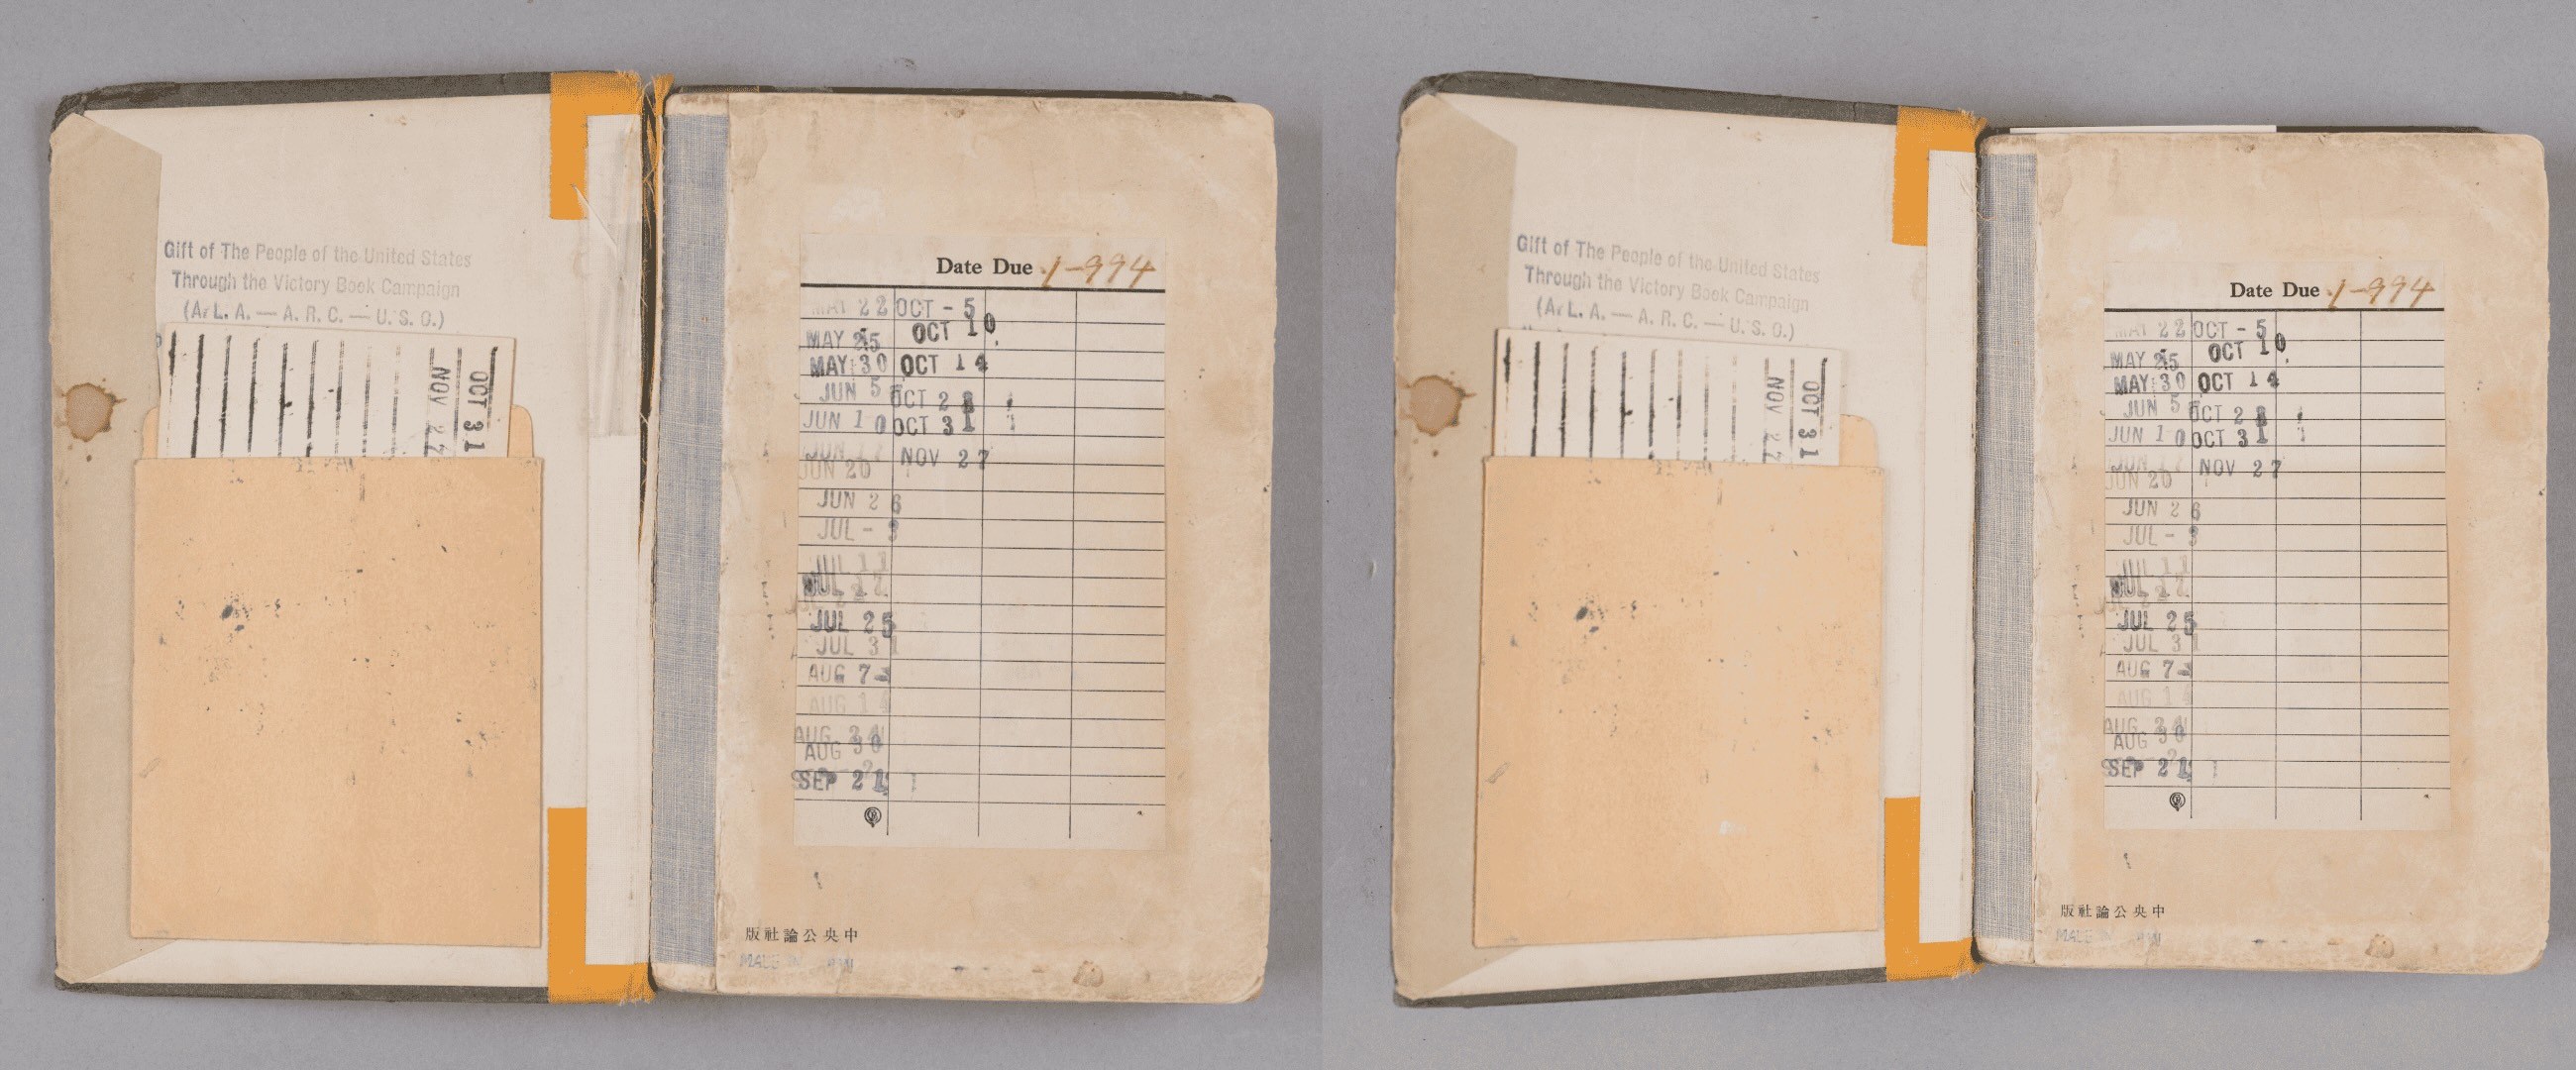 Gift of The People of the United States
Through the Victory Book Campaign
(A. L. A. — A. R. C. — U. S. O.)
OCT 31
NOV 27
Date Due 1-994
MAY 22 OCT - 5
MAY 25 OCT 10
MAY 30 OCT 14
JUN 5 OCT 2
JUN 10 OCT 31
JUN NOV 27
JUN 20
JUN 26
JUL - 3
JUL 11
JUL
JUL 25
JUL 31
AUG 7
AUG 14
AUG
AUG 30
SEP 21
版社論公央中
MADE IN
Gift of The People of the United States
Through the Victory Book Campaign
(A. L. A. — A. R. C. — U. S. O.)
OCT 31
NOV 27
Date Due 1-994
MAY 22 OCT - 5
MAY 25 OCT 10
MAY 30 OCT 14
JUN 5 OCT 2
JUN 10 OCT 31
JUN NOV 27
JUN 20
JUN 26
JUL - 3
JUL 11
JUL
JUL 25
JUL 31
AUG 7
AUG 14
AUG
AUG 30
SEP 21
版社論公央中
MADE IN